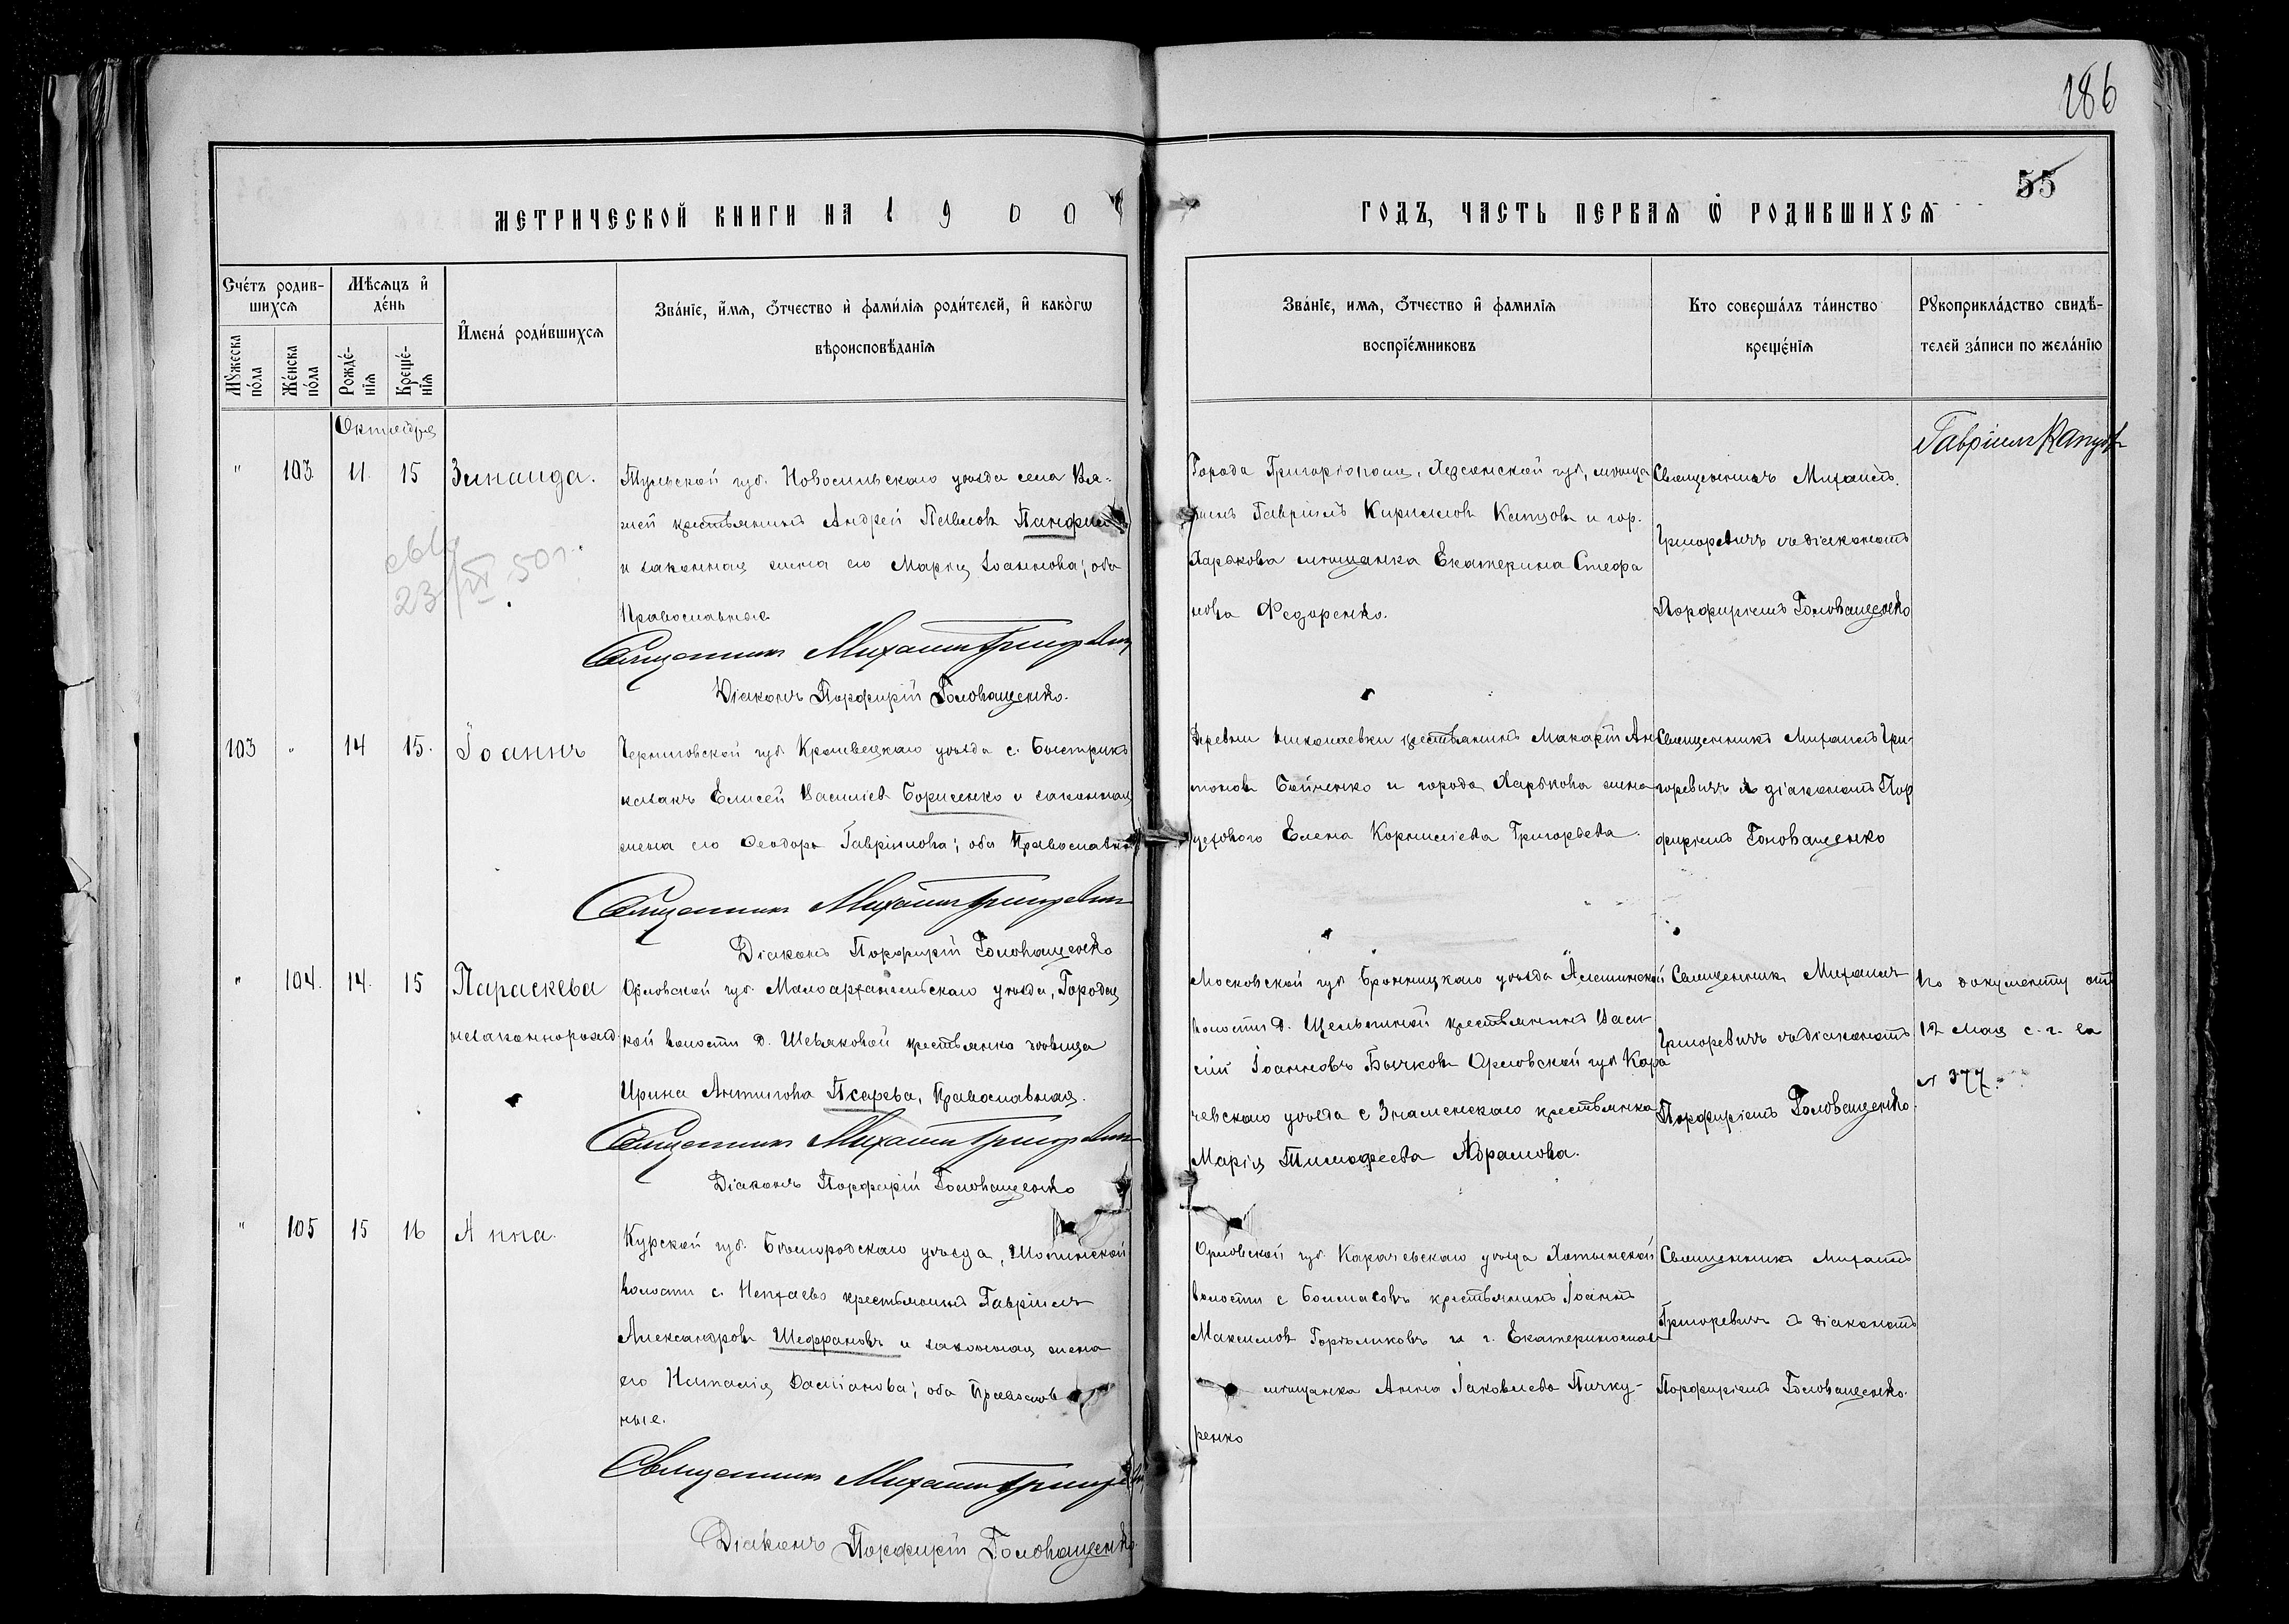 186
55
МЕТРИЧЕСКОЙ КНИГИ НА 1900
ГОДЪ, ЧАСТЬ ПЕРВАЯ Ѡ РОДИВШИХСЯ
Счетъ родив-
шихся
Мужеска пола
Женска пола
Мѣсяцъ и
день
Рожде-
нія
Креще-
нія
Имена родившихся
Званіе, имя, отчество и фамилія родителей, и какогѡ
вѣроисповѣданія
Званіе, имя, отчество и фамилія
воспріемниковъ
Кто совершалъ таинство
крещенія
Рукоприкладство свидѣ-
телей записи по желанію
Октября
" 103 11. 15 Зинаида.
Тульской губ. Новосильскаго уѣзда села Вя-
жей крестьянинъ Андрей Павловъ
и законная жена его Марія Іоаннова; оба
Православные
23/IX 50 г.
Священникъ Михаилъ Григоревичъ
Діаконъ Порфирій Голованщенко.
Города Григоріополя, Херсонской губ.
Гавріилъ Кирилловъ Капцовъ и гор.
Харькова мѣщанка Екатерина Стефа
нова Федоренко.
Священникъ Михаилъ
Григоревичъ съ діакономъ
Порфиріемъ Голованщенко
Гавріилъ
103 " 14 15. Іоаннъ
Черниговской губ. Кролевецкаго уѣзда с. Быстрикъ
казакъ Елисей Василіевъ Борисенко и законная
жена его Феодора Гавріилова; оба Православные
Священникъ Михаилъ Григоревичъ
Діаконъ Порфирій Голованщенко
Деревни Николаевки крестьянинъ Макарій Ан
тоновъ Бойченко и города Харькова жена
цехового Елена Корниліева Григорьева.
Священникъ Михаилъ Гри-
горевичъ съ діакономъ Пор
фиріемъ Голованщенко
" 104. 14. 15 Параскева
незаконнорожд.
Орловской губ. Малоархангельскаго уѣзда, Городец
кой волости д. Шевяковой крестьянка дѣвица
Ирина Антипова Псарева, Православная.
Священникъ Михаилъ Григоревичъ
Діаконъ Порфирій Голованщенко
Московской губ. Бронницкаго уѣзда Алешинской
волости д. Щельпиной крестьянинъ Васи-
лій Іоанновъ Бычковъ Орловской губ. Кара
чевскаго уѣзда с Знаменскаго крестьянка
Марія Тимофеева Абрамова.
Священникъ Михаилъ
Григоревичъ съ діакономъ
Порфиріемъ Голованщенко.
По документу отъ
12 мая с. г. за
№ 377.
" 105 15 16 Анна.
Курской губ. Бѣлгородскаго уѣзда, Шопинской
волости с. Непхаево крестьянинъ Гавріилъ
Александровъ Шеффрановъ и законная жена
его Наталія Даміанова; оба Православ
ные.
Священникъ Михаилъ Григоревичъ
Діаконъ Порфирій Голованщенко.
Орловской губ. Карачевскаго уѣзда Хотынской
волости с крестьянинъ Іоаннъ
Максимовъ и г. Екатеринослава
мѣщанка Анна Іаковлева Пичку-
ренко
Священникъ Михаилъ
Григоревичъ съ діакономъ
Порфиріемъ Голованщенко.